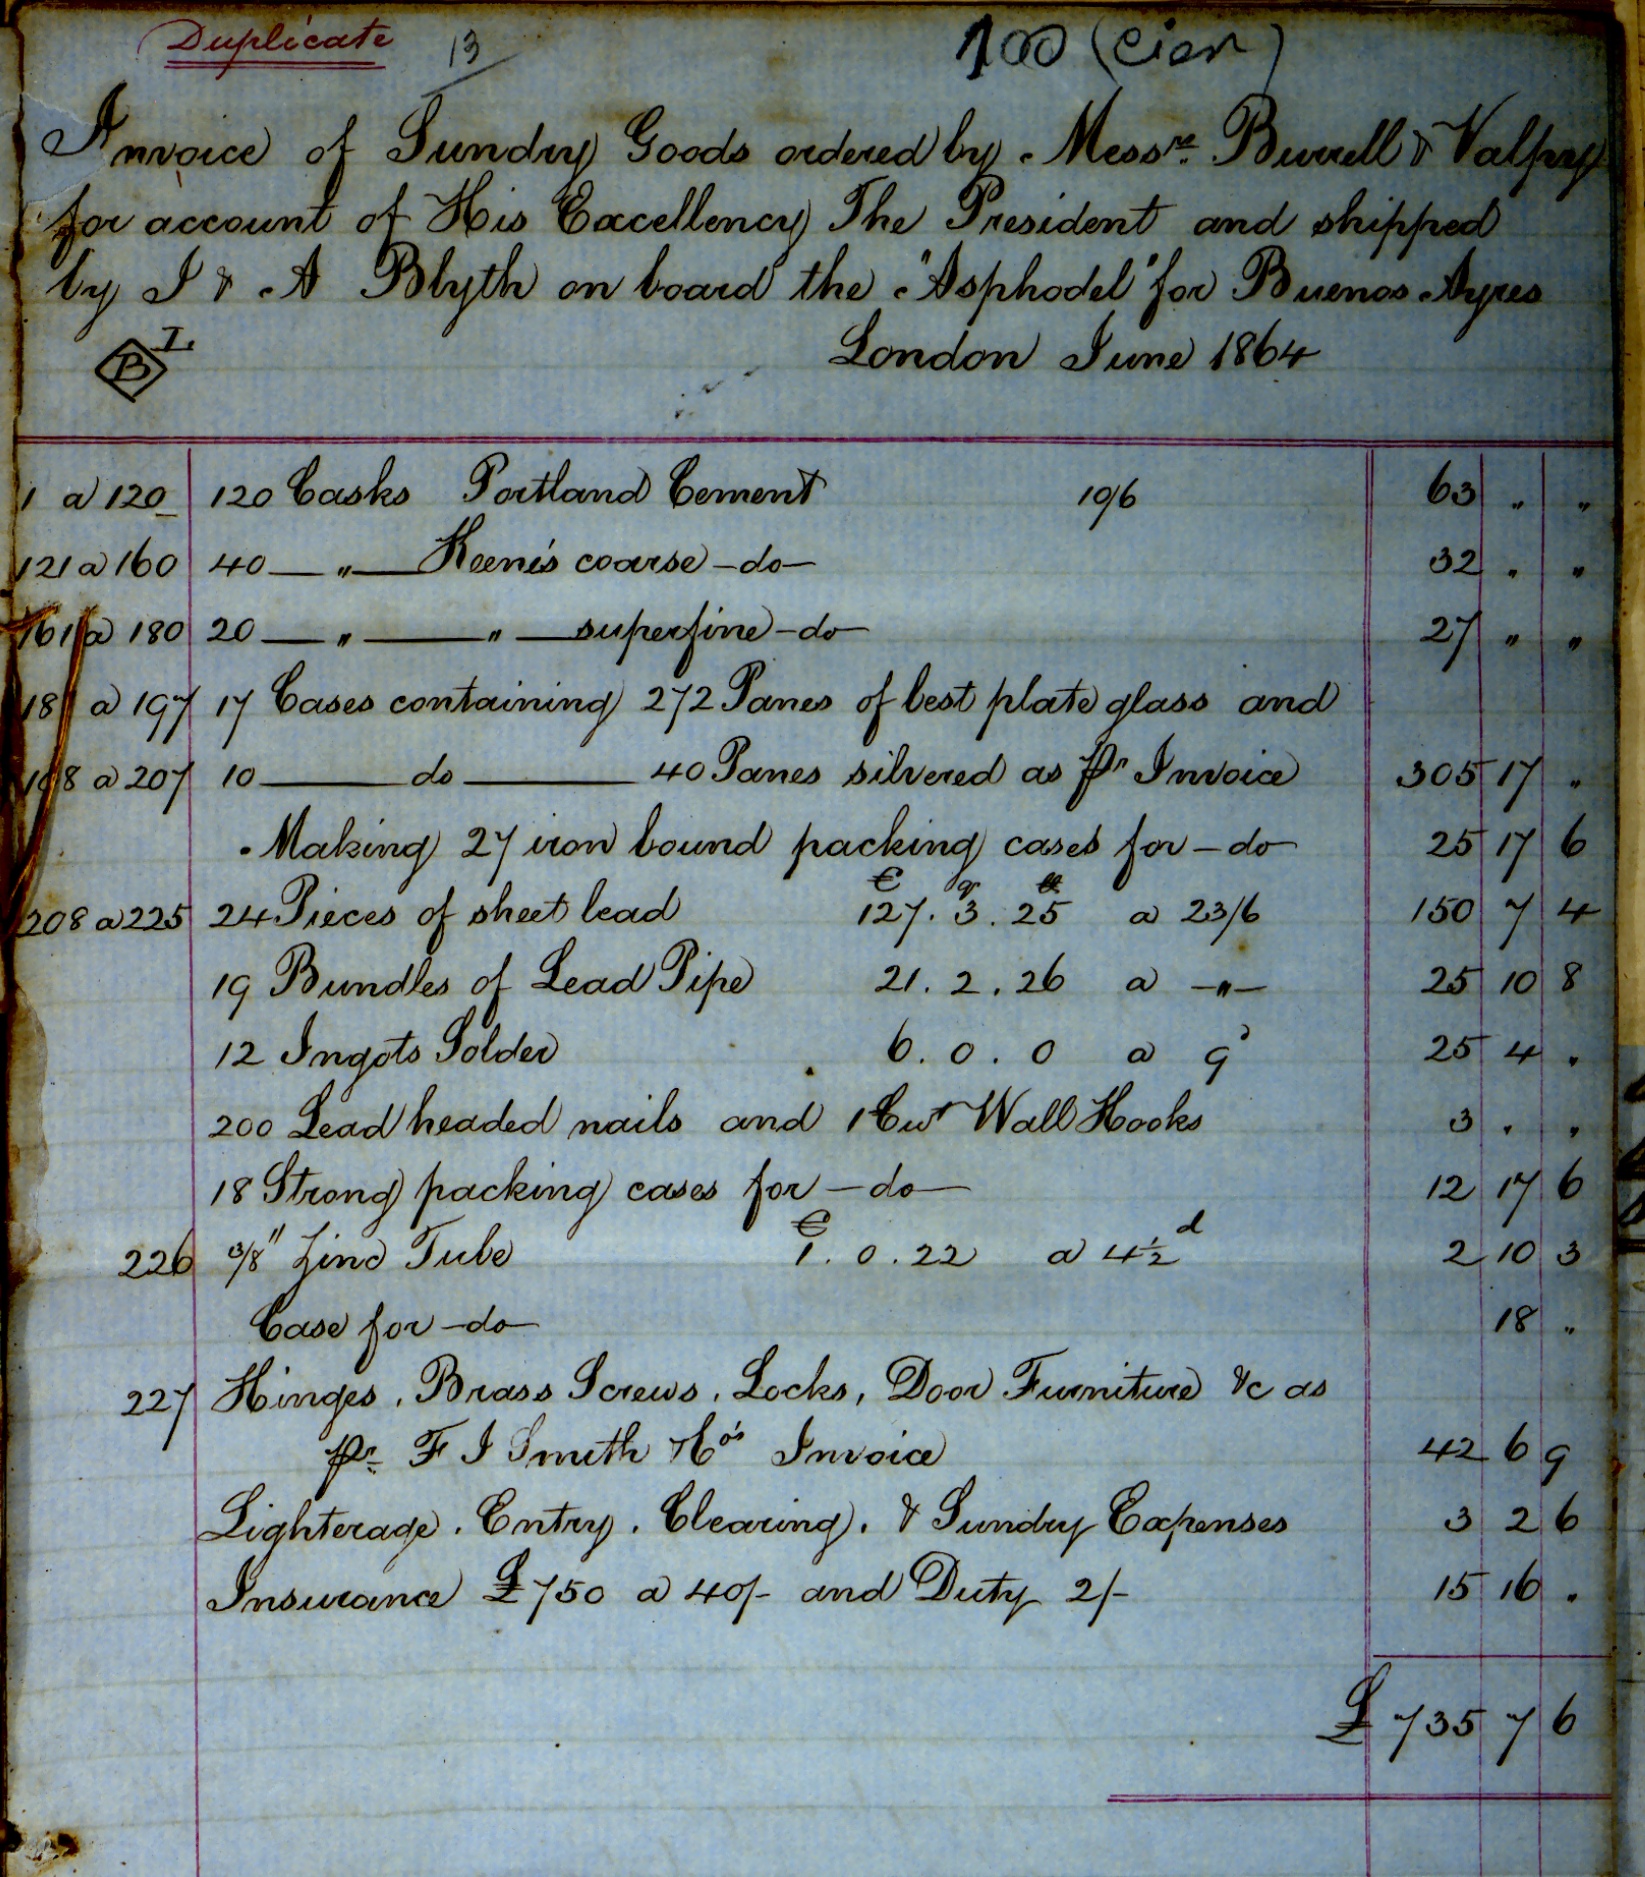 Duplicate 13 100 (cien)
Invoice of Sundry Goods ordered by Messrs Burrell & Valpy
for account of His Excellency The President and shipped
by J & A Blyth on board the "Asphodel" for Buenos Ayres
London June 1864
B L
1 a 120 120 Casks Portland Cement 10/6 63 " "
121 a 160 40 — " — Keen's coarse - do - 32 " "
161 a 180 20 — " — " — superfine - do - 27 " "
181 a 197 17 Cases containing 272 Panes of best plate glass and
198 a 207 10 — do — 40 Panes silvered as pr Invoice 305 17 "
Making 27 iron bound packing cases for - do - 25 17 6
C qr lb
208 a 225 24 Pieces of sheet lead 127. 3. 25 a 23/6 150 7 4
19 Bundles of Lead Pipe 21. 2. 26 a - " - 25 10 8
12 Ingots Solder 6. 0. 0 a 9d 25 4 "
200 Lead headed nails and 1 Cwt Wall Hooks 3 " "
18 Strong packing cases for - do - 12 17 6
C
226 3/8" Zinc Tube 1. 0. 22 a 4½d 2 10 3
Case for - do - 18 "
227 Hinges, Brass Screws, Locks, Door Furniture &c as
pr F J Smith & Co's Invoice 42 6 9
Lighterage, Entry, Clearing, & Sundry Expenses 3 2 6
Insurance £750 a 40/- and Duty 2/- 15 16 "
£ 735 7 6